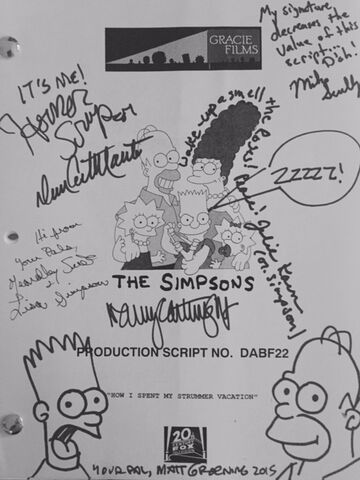 GRACIE
FILMS
My signature
decreases the
value of this
script...
D'oh.
Mike
Scully
IT'S ME!
Homer
Simpson
Dan Castellaneta
Wake up & smell the
Julie Kavner
Simpson)
ZZZZZ!
Hi from
your Pals,
Yeardley Smith
&
Lisa Simpson
THE SIMPSONS
Nancy Cartwright
PRODUCTION SCRIPT NO. DABF22
"HOW I SPENT MY STRUMMER VACATION"
20th
CENTURY
FOX
YOUR PAL, MATT GROENING 2015